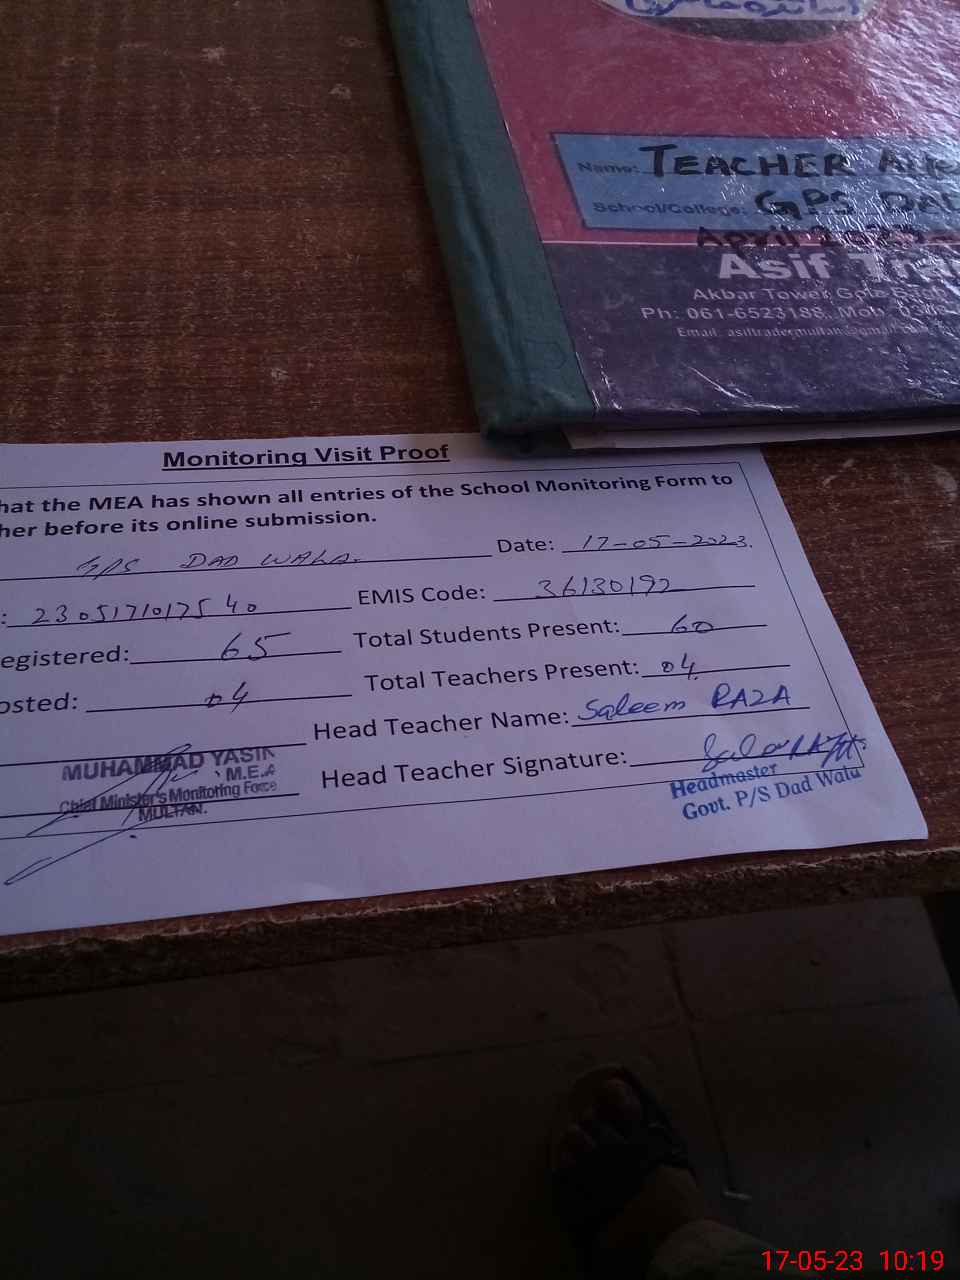 Name: TEACHER
School/College: GPS
April 2023
Asif
Akbar Tower
Ph: 061-6523188, Mob:
Email:
Monitoring Visit Proof
hat the MEA has shown all entries of the School Monitoring Form to
her before its online submission.
GPS DAD WALA. Date: 17-05-2023.
: 23051710175 40 EMIS Code: 36130192
egistered: 65 Total Students Present: 60
osted: 04 Total Teachers Present: 04
Head Teacher Name: Saleem RAZA
MUHAMMAD YASIN
M.E.A
Chief Minister's Monitoring Force
MULTAN.
Head Teacher Signature:
Headmaster
Govt. P/S Dad Wala
17-05-23 10:19